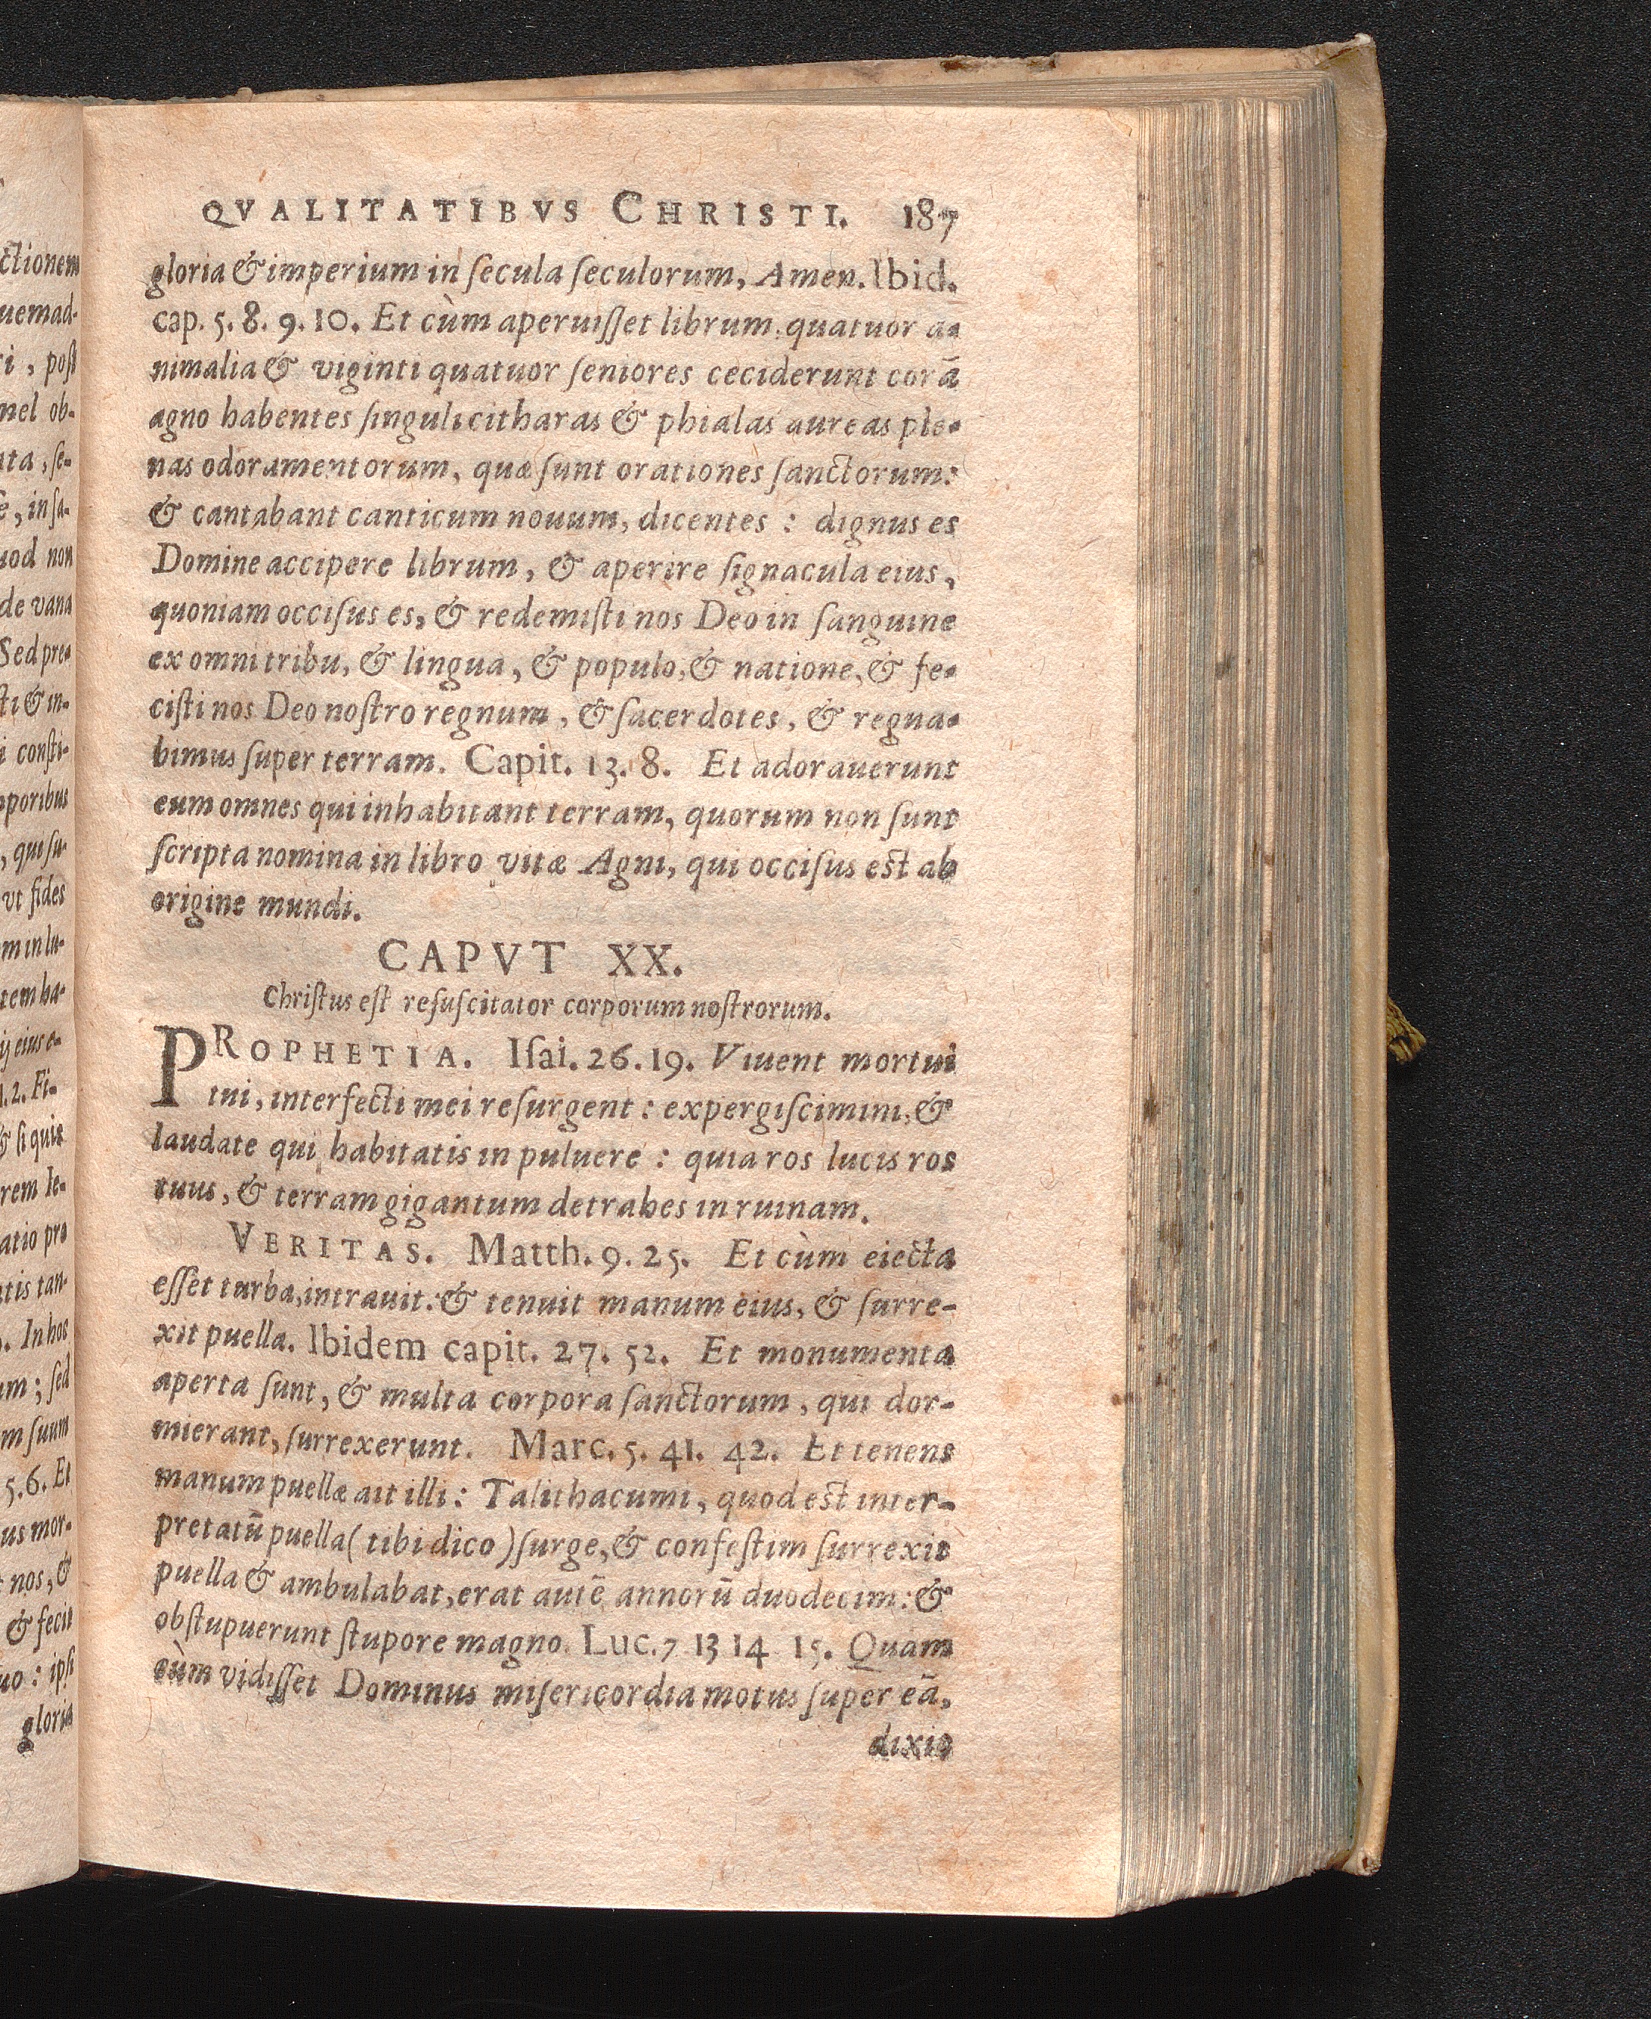 QVALITATIBVS CHRISTI. 187
gloria & imperium in ſecula ſeculorum, Amen. Ibid.
cap. 5. 8. 9. 10. Et cùm aperuiſſet librum, quatuor a-
nimalia & viginti quatuor ſeniores ceciderunt corā
agno habentes ſinguli citharas & phialas aureas ple-
nas odoramentorum, quæ ſunt orationes ſanctorum:
& cantabant canticum nouum, dicentes: dignus es
Domine accipere librum, & aperire ſignacula eius,
quoniam occiſus es, & redemiſti nos Deo in ſanguine
ex omni tribu, & lingua, & populo, & natione, & fe-
ciſti nos Deo noſtro regnum, & ſacerdotes, & regna-
bimus ſuper terram. Capit. 13. 8. Et adorauerunt
eum omnes qui inhabitant terram, quorum non ſunt
ſcripta nomina in libro vitæ Agni, qui occiſus est ab
origine mundi.
CAPVT XX.
Chriſtus eſt reſuſcitator corporum noſtrorum.
PROPHETIA. Iſai. 26. 19. Viuent mortui
tui, interfecti mei reſurgent: expergiſcimini, &
laudate qui habitatis in puluere: quia ros lucis ros
tuus, & terram gigantum detrahes in ruinam.
VERITAS. Matth. 9. 25. Et cùm eiecta
eſſet turba, intrauit: & tenuit manum eius, & ſurre-
xit puella. Ibidem capit. 27. 52. Et monumenta
aperta ſunt, & multa corpora ſanctorum, qui dor-
mierant, ſurrexerunt. Marc. 5. 41. 42. Et tenens
manum puellæ ait illi: Talithacumi, quod est inter-
pretatū puella (tibi dico) ſurge, & confeſtim ſurrexit
puella & ambulabat, erat autē annorū duodecim: &
obſtupuerunt ſtupore magno. Luc. 7 13 14 15. Quam
cùm vidiſſet Dominus miſericordia motus ſuper eā,
dixit
ctionem
uemad-
ri, poſt
mel ob-
ata, ſe-
e, in ſa-
uod non
de vana
Sed pre-
ſti & in-
i conſti-
mporibus
, qui ſu-
vt fides
m in lu-
tem ha-
ij eius e-
1. 2. Fi-
& ſi quis
rem le-
atio pro
tis tan-
o. In hoc
um; ſed
m ſuum
5. 6. Et
us mor-
t nos, &
& fecit
uo: ipſi
gloria